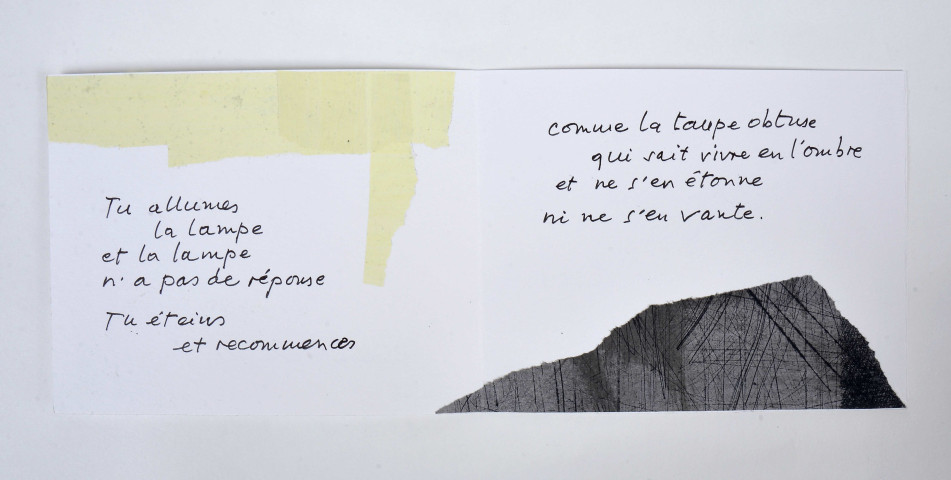 Tu allumes
la lampe
et la lampe
n'a pas de réponse
Tu éteins
et recommences
comme la taupe obtuse
qui sait vivre en l'ombre
et ne s'en étonne
ni ne s'en vante.